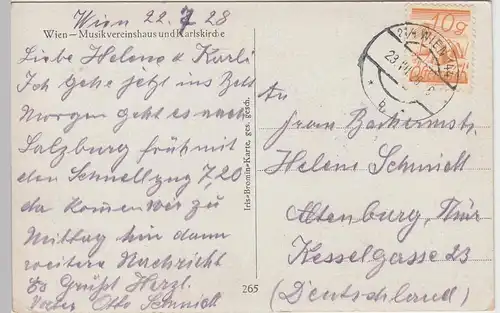 Wien 22. 7 28
Wien – Musikvereinshaus und Karlskirche
Liebe Helene & Karli
Ich gehe jetzt ins Bett
Morgen geht es nach
Salzburg früh mit
den Schnellzug 7,20
da kommen wir zu
Mittag hin dann
weitere Nachricht
Es Grüßt Herzl.
Vater Otto Schmidt
Iris-Bromin-Karte, ges. gesch.
265
10g
WIEN
An
Frau
Helene Schmidt
Altenburg, Thür
Kesselgasse 23
(Deutschland)